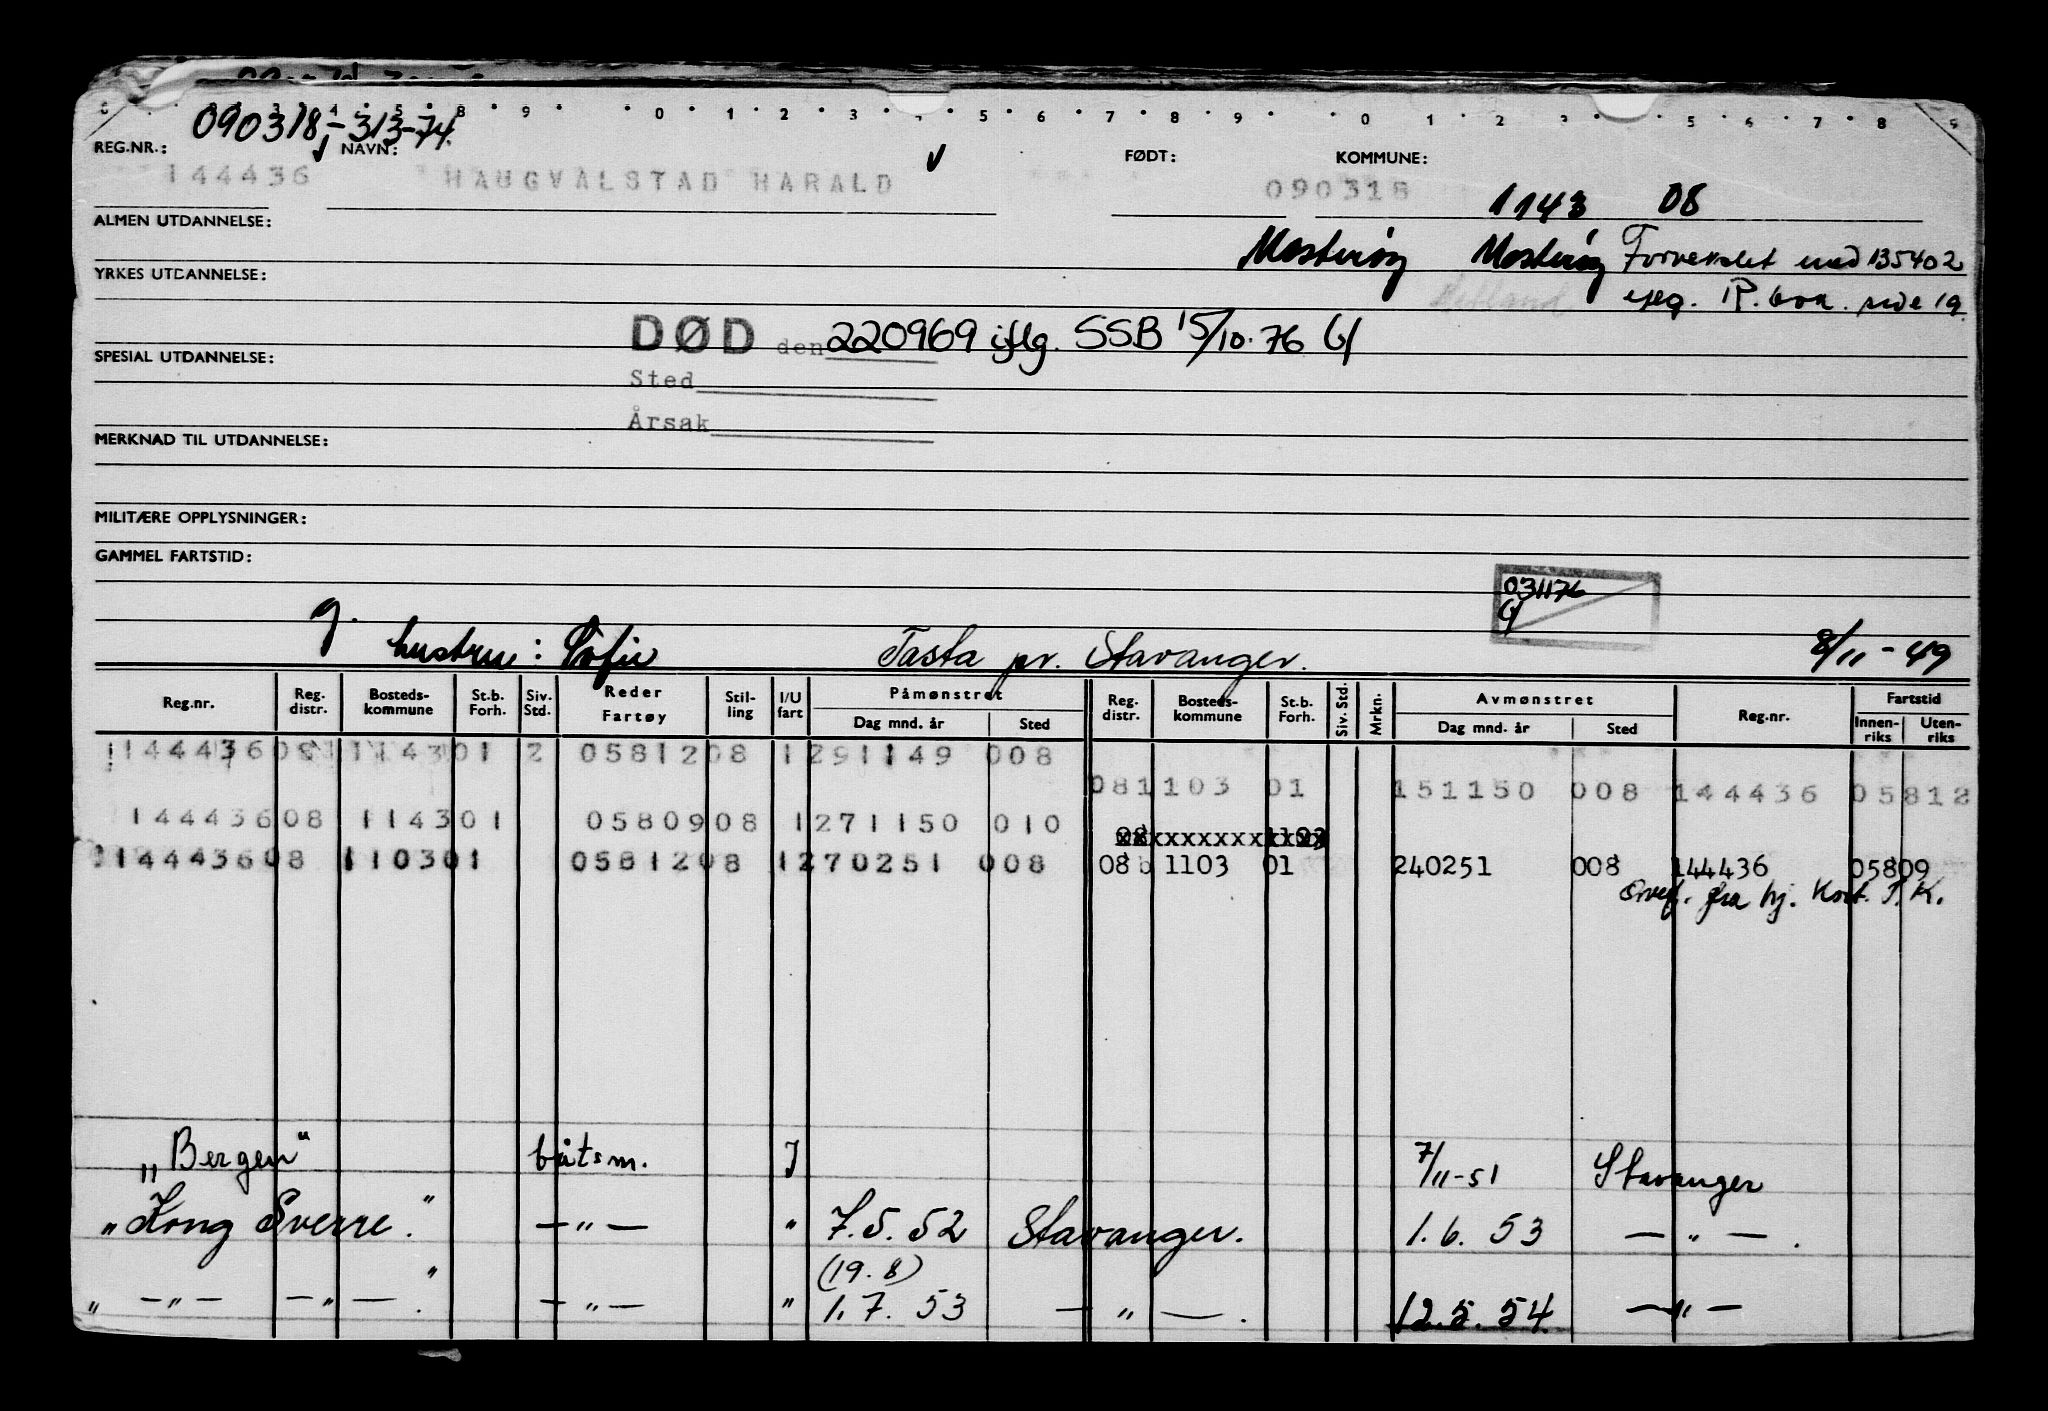 090318-313-74.
REG.NR.: NAVN: FØDT: KOMMUNE:
144436 HAUGVALSTAD HARALD 090318 1143 08
ALMEN UTDANNELSE:
Mosterøy Mosterøy Forvekslet med 135402
YRKES UTDANNELSE:
Hetland R. bok. side 19.
DØD den 220969 iflg. SSB 15/10.76
SPESIAL UTDANNELSE:
Sted
Årsak
MERKNAD TIL UTDANNELSE:
MILITÆRE OPPLYSNINGER:
GAMMEL FARTSTID:
031176
g.
hustru: Sofie Tasta pr. Stavanger. 8/11-49
Reg.nr. Reg. distr. Bosteds-kommune St.b. Forh. Siv. Std. Reder Fartøy Stil-ling I/U fart Påmønstret Dag mnd. år Sted Reg. distr. Bosteds-kommune St.b. Forh. Siv. Std. Mrkn. Avmønstret Dag mnd. år Sted Reg.nr. Fartstid Innen-riks Uten-riks
144436 08 1143 01 2 05812 08 1 291149 008
08 1103 01 151150 008 144436 05812
144436 08 1143 01 05809 08 1 271150 010
144436 08 1103 01 05812 08 1 270251 008 08 1103 01 240251 008 144436 05809
Overf. fra hj. Kort. T.K.
„Bergen" båtsm. J 7/11-51 Stavanger
„Kong Sverre". —"— " 7.5.52 Stavanger. 1.6.53 —"—.
(19.8)
„ —"— —"—". —"— " 1.7.53 —"—. 12.5.54. —"—